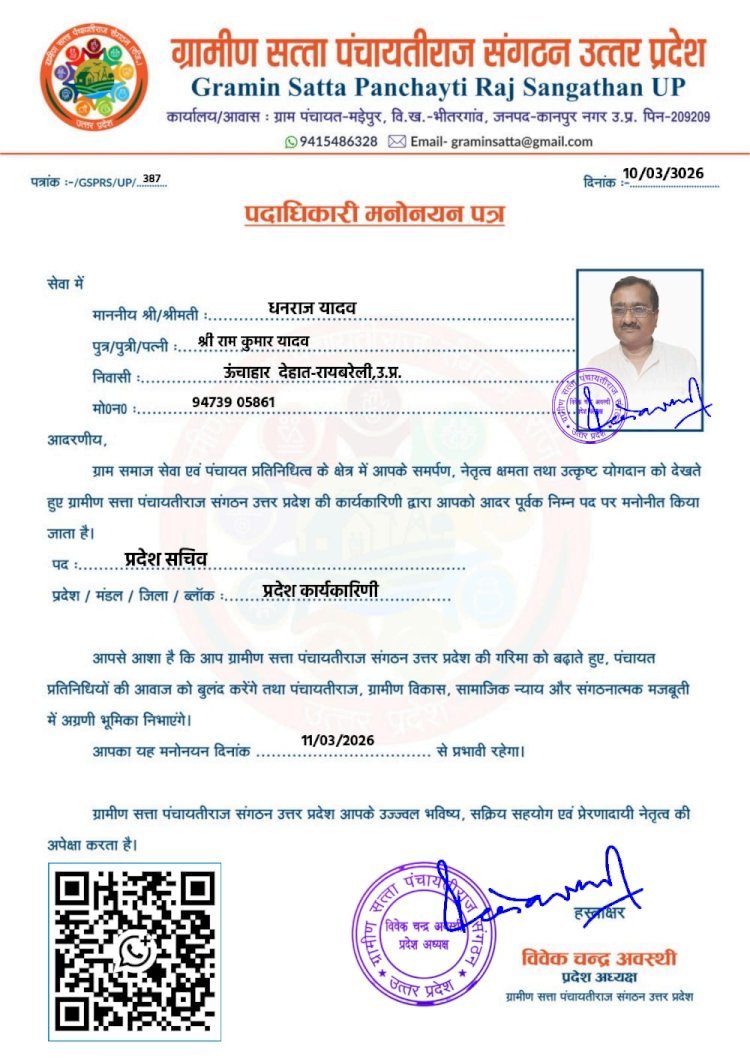 ग्रामीण सत्ता पंचायतीराज संगठन उत्तर प्रदेश
Gramin Satta Panchayti Raj Sangathan UP
कार्यालय/आवास : ग्राम पंचायत-मड़ेपुर, वि.ख.-भीतरगांव, जनपद-कानपुर नगर उ.प्र. पिन-209209
9415486328 Email- graminsatta@gmail.com
पत्रांक :-/GSPRS/UP/ 387
दिनांक :- 10/03/3026
पदाधिकारी मनोनयन पत्र
सेवा में
माननीय श्री/श्रीमती : धनराज यादव
पुत्र/पुत्री/पत्नी : श्री राम कुमार यादव
निवासी : ऊंचाहार देहात-रायबरेली,उ.प्र.
मो0न0 : 94739 05861
आदरणीय,
ग्राम समाज सेवा एवं पंचायत प्रतिनिधित्व के क्षेत्र में आपके समर्पण, नेतृत्व क्षमता तथा उत्कृष्ट योगदान को देखते
हुए ग्रामीण सत्ता पंचायतीराज संगठन उत्तर प्रदेश की कार्यकारिणी द्वारा आपको आदर पूर्वक निम्न पद पर मनोनीत किया
जाता है।
पद : प्रदेश सचिव
प्रदेश / मंडल / जिला / ब्लॉक : प्रदेश कार्यकारिणी
आपसे आशा है कि आप ग्रामीण सत्ता पंचायतीराज संगठन उत्तर प्रदेश की गरिमा को बढ़ाते हुए, पंचायत
प्रतिनिधियों की आवाज को बुलंद करेंगे तथा पंचायतीराज, ग्रामीण विकास, सामाजिक न्याय और संगठनात्मक मजबूती
में अग्रणी भूमिका निभाएंगे।
आपका यह मनोनयन दिनांक 11/03/2026 से प्रभावी रहेगा।
ग्रामीण सत्ता पंचायतीराज संगठन उत्तर प्रदेश आपके उज्ज्वल भविष्य, सक्रिय सहयोग एवं प्रेरणादायी नेतृत्व की
अपेक्षा करता है।
ग्रामीण सत्ता पंचायतीराज संगठन
विवेक चन्द्र अवस्थी
प्रदेश अध्यक्ष
उत्तर प्रदेश
हस्ताक्षर
विवेक चन्द्र अवस्थी
प्रदेश अध्यक्ष
ग्रामीण सत्ता पंचायतीराज संगठन उत्तर प्रदेश